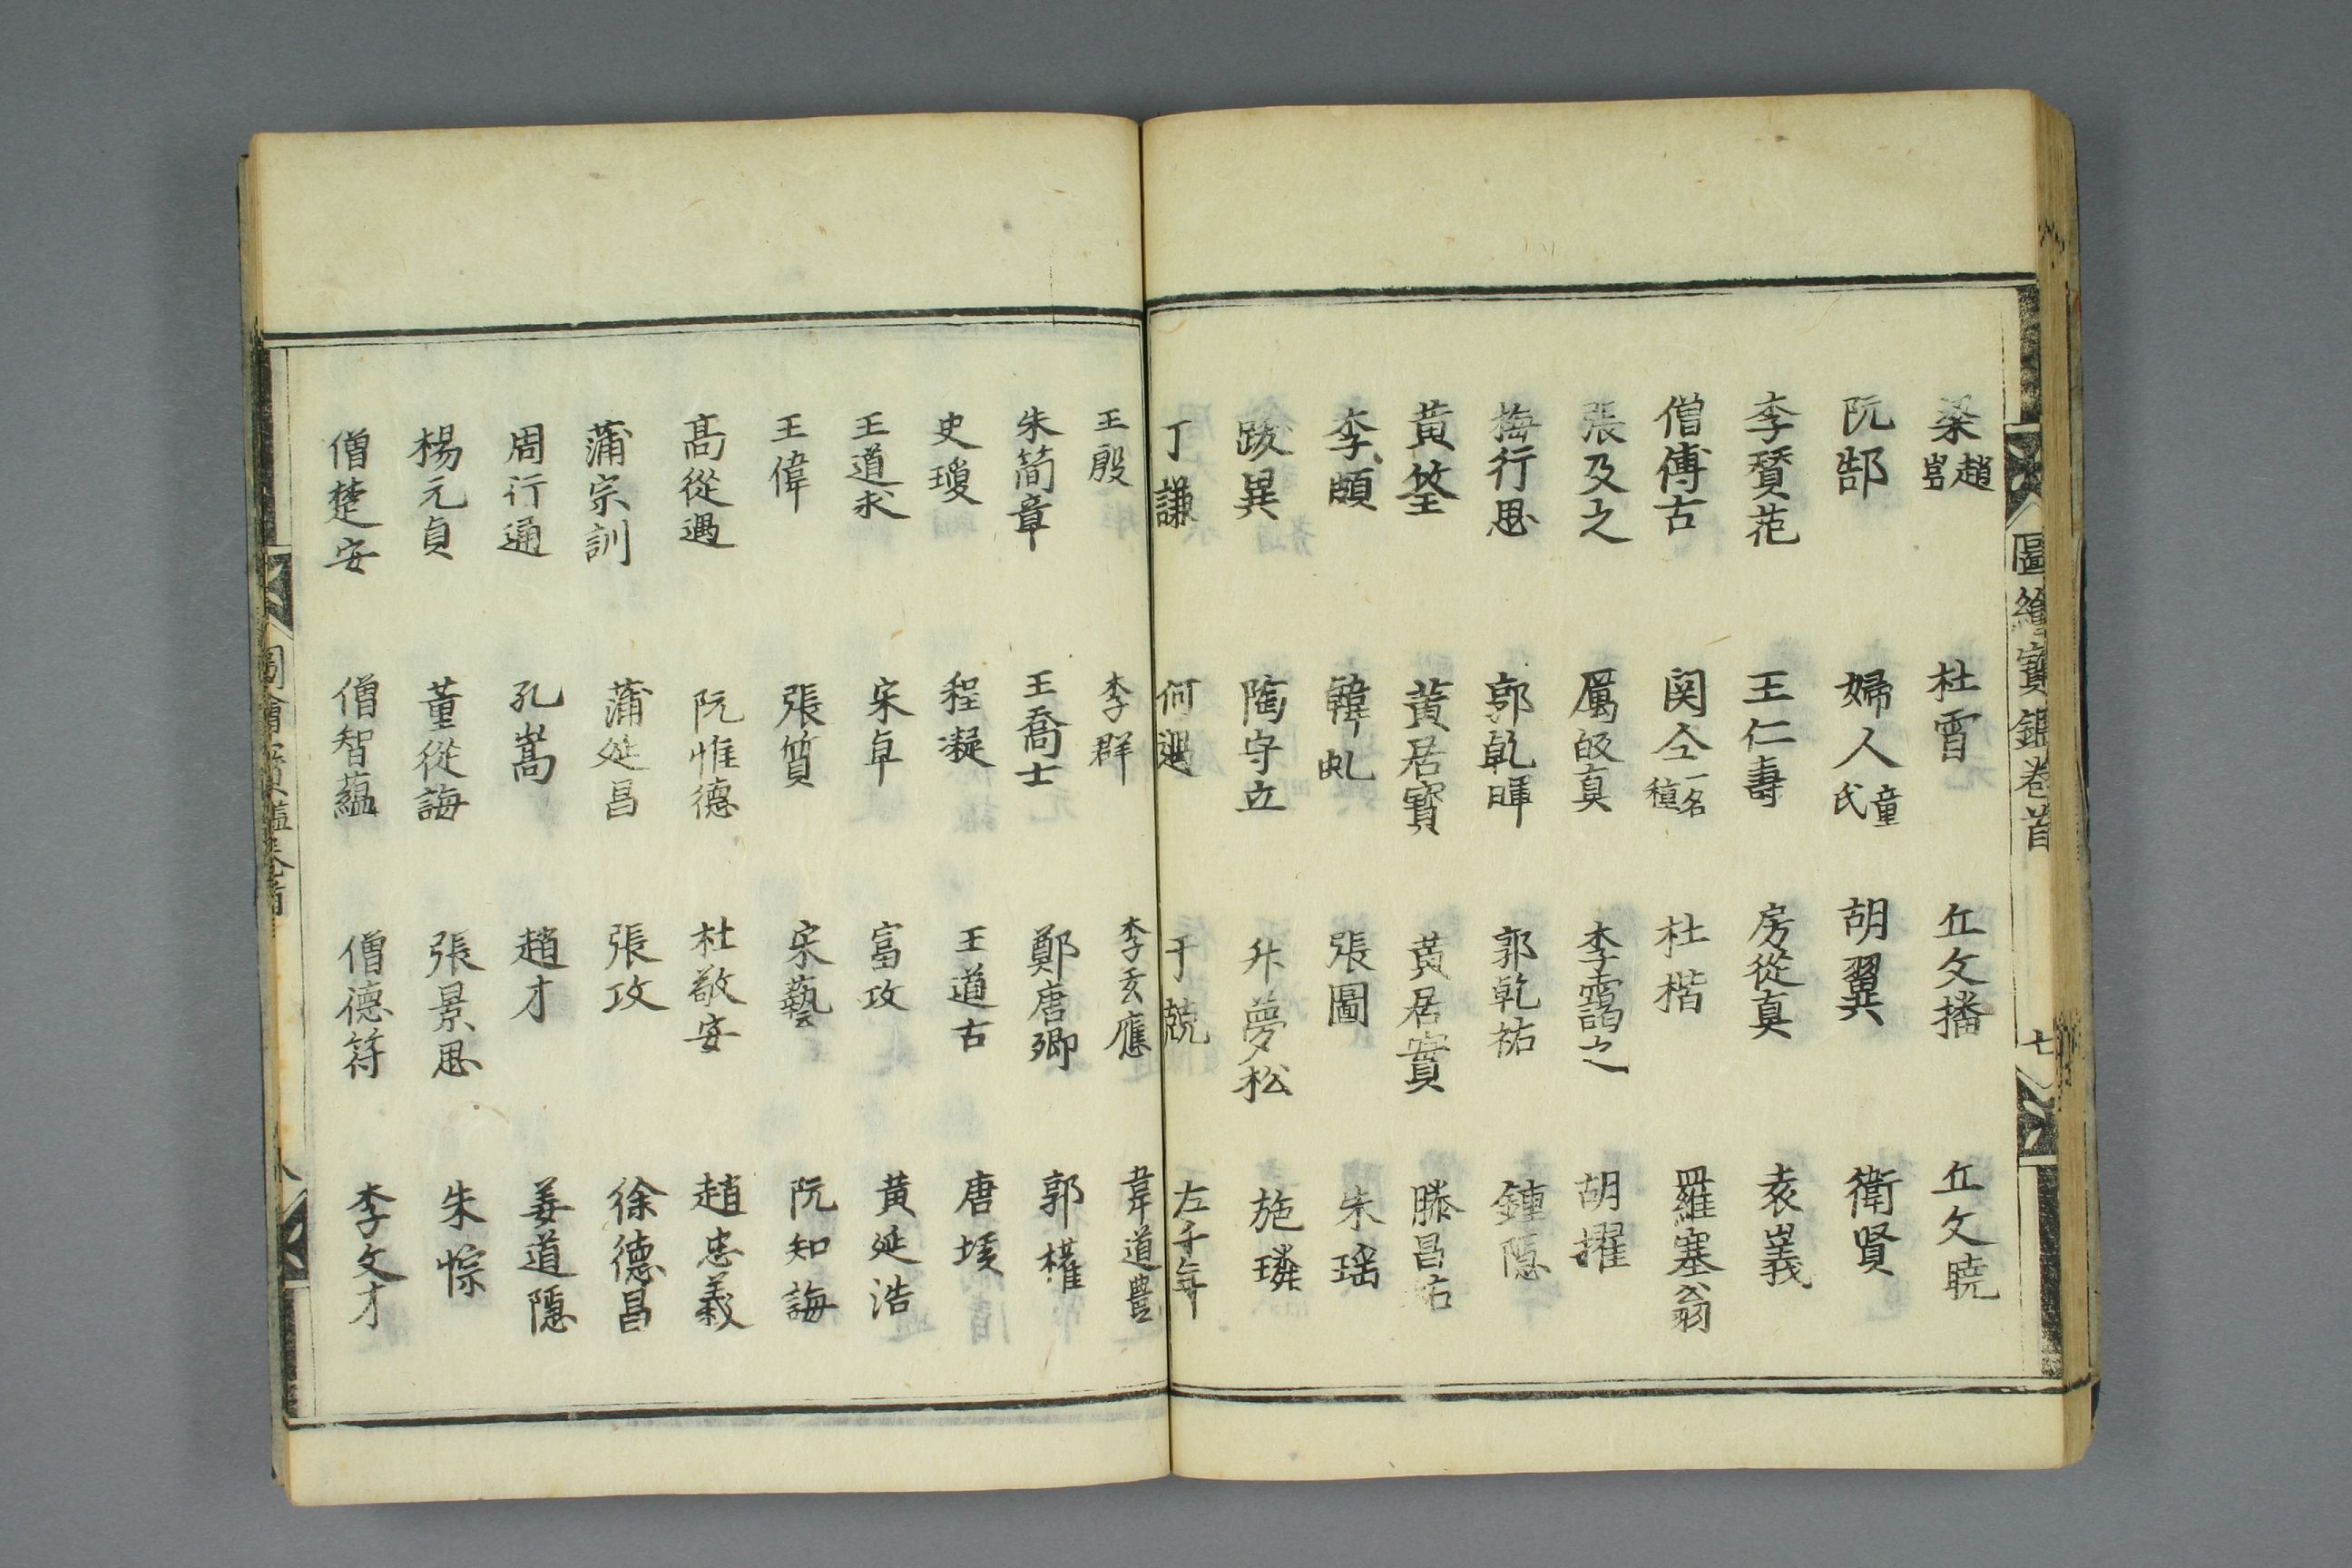 梁趙嵓 杜霄 丘文播 丘文曉
阮郜 婦人童氏 胡翼 衛賢
李贇花 王仁壽 房從真 袁義
僧傅古 関仝一名穜 杜楷 羅塞翁
張及之 厲皈真 李靄之 胡擢
梅行思 郭乾暉 郭乾祐 鍾隱
黃筌 黃居寶 黃居實 滕昌祐
李頗 韓虬 張圖 朱瑶
跋異 陶守立 竹夢松 施璘
丁謙 何遇 于兢 左千年
圖繪寶鑑卷首 七
王殷 李群 李玄應 韋道豐
朱簡章 王喬士 鄭唐卿 郭權
史瓊 程凝 王道古 唐垓
王道求 宋卓 富玫 黃延浩
王偉 張質 宋藝 阮知誨
高從遇 阮惟德 杜敬安 趙忠義
蒲宗訓 蒲延昌 張玫 徐德昌
周行通 孔嵩 趙才 姜道隱
楊元貞 董從誨 張景思 朱悰
僧楚安 僧智蘊 僧德符 李文才
圖繪寶鑑卷首 八